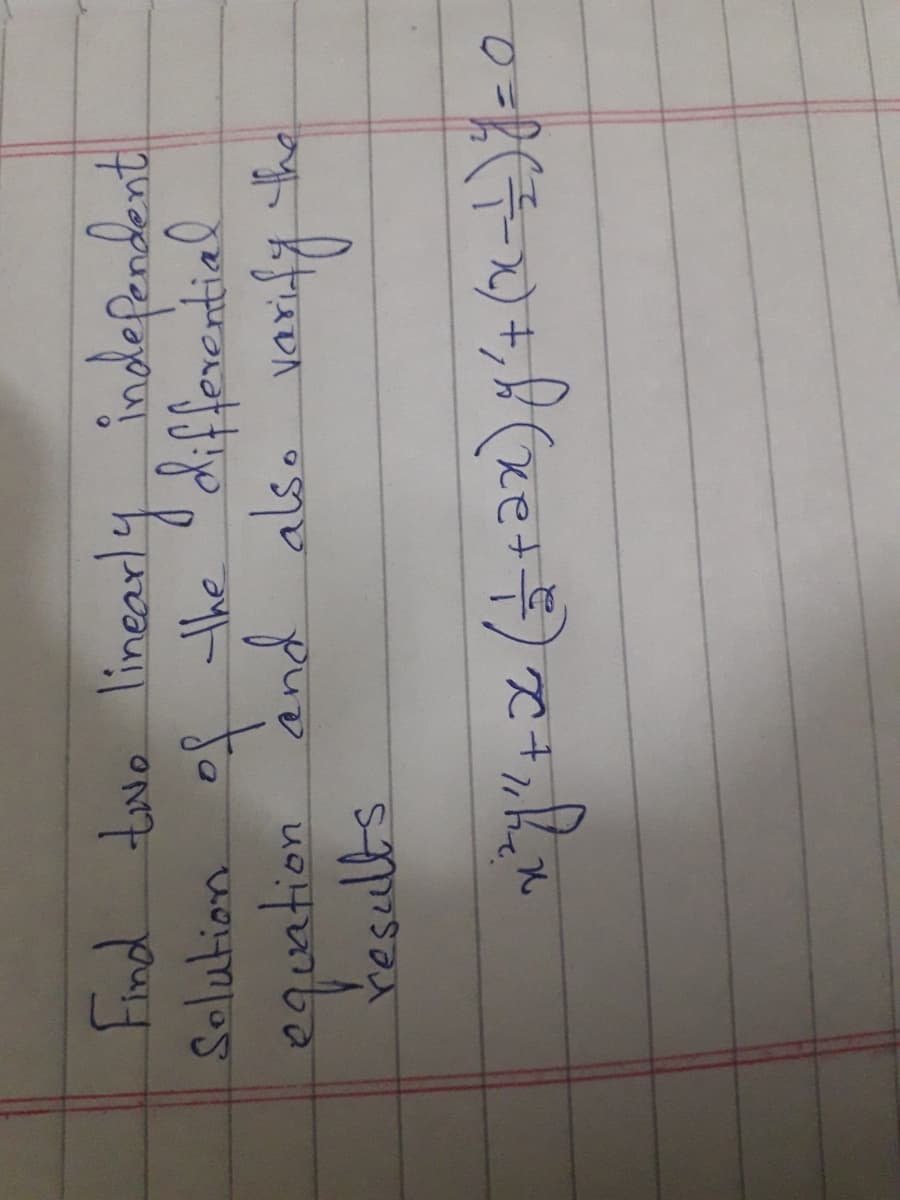 Find two linearly independent
Solution of the differential
equation and also varify the
results
x²y'' + x(1/2 + 2x)y' + (x - 1/2)y = 0